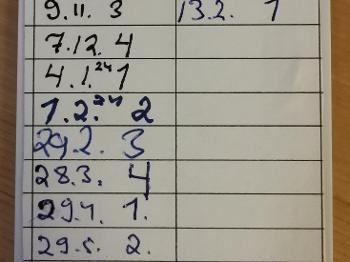 9.11. 3 13.2. 1
7.12. 4
4.1.24 1
1.2.24 2
29.2. 3
28.3. 4
29.4. 1.
29.5. 2.